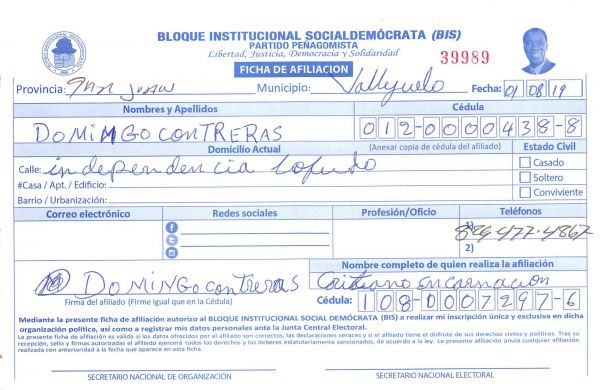 BLOQUE INSTITUCIONAL SOCIALDEMÓCRATA (BIS)
PARTIDO PEÑAGOMISTA
Libertad, Justicia, Democracia y Solidaridad
39989
FICHA DE AFILIACION
Provincia: San Juan Municipio: Vallejuelo Fecha: 01 08 19
Nombres y Apellidos Cédula
DOMINGO CONTRERAS 012-0000438-8
Domicilio Actual (Anexar copia de cédula del afiliado) Estado Civil
Calle: independencia Casado
#Casa / Apt. / Edificio: Soltero
Barrio / Urbanización: Conviviente
Correo electrónico Redes sociales Profesión/Oficio Teléfonos
1) 829 477-4867
2)
Nombre completo de quien realiza la afiliación
DOMINGO contreras Encarnacion
Firma del afiliado (Firme igual que en la Cédula) Cédula: 108-0007297-6
Mediante la presente ficha de afiliación autorizo al BLOQUE INSTITUCIONAL SOCIAL DEMÓCRATA (BIS) a realizar mi inscripción única y exclusiva en dicha
organización política, así como a registrar mis datos personales ante la Junta Central Electoral.
La presente ficha de afiliación es válida si los datos ofrecidos por el afiliado son correctos, las declaraciones veraces y si el afiliado tiene el disfrute de sus derechos civiles y políticos. Tras su
recepción, sello y firmas autorizadas el afiliado ejercerá todos los derechos y los deberes estatutariamente sancionados, de acuerdo a la ley. La presente afiliación anula cualquier afiliación
realizada con anterioridad a la fecha que aparece en esta ficha.
SECRETARIO NACIONAL DE ORGANIZACIÓN SECRETARIO NACIONAL ELECTORAL